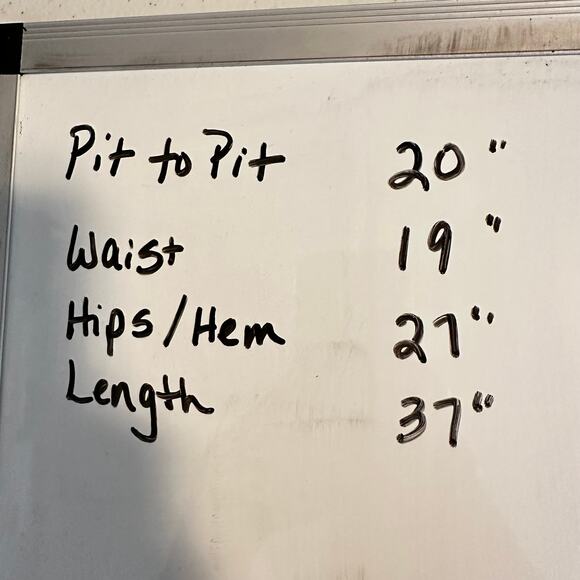 Pit to Pit 20"
Waist 19"
Hips/Hem 27"
Length 37"